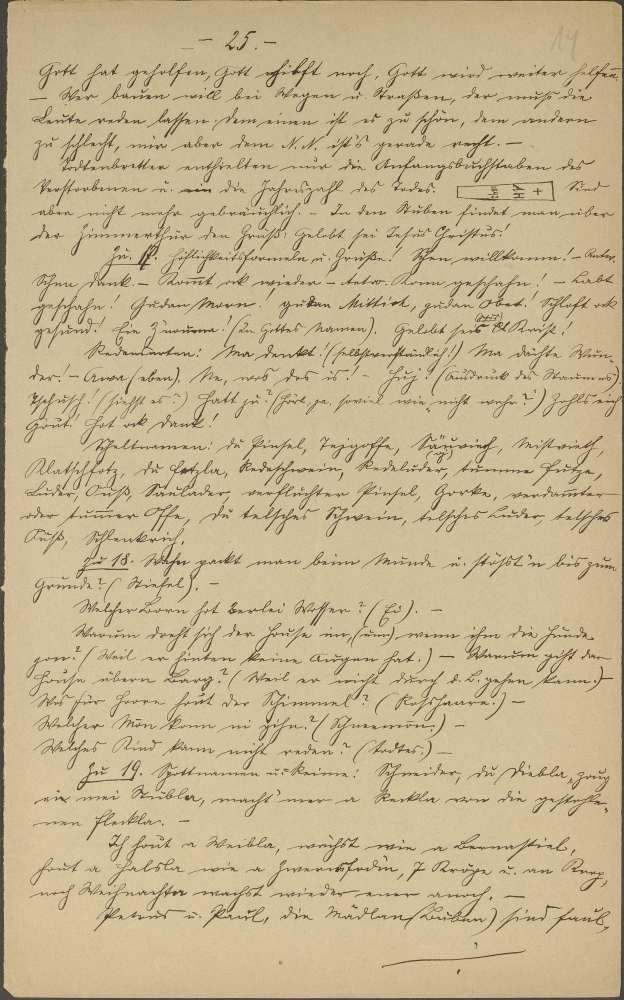 - 25. -
14
Gott hat geholfen, Gott hilft noch, Gott wird weiter helfen.
- Wer bauen will bei Wegen u. Straßen, der muß die
Leute reden lassen; dem einen ist es zu schön, dem andern
zu schlecht, mir aber dem N. N. ist's gerade recht. -
Todtenbretter enthielten nur die Anfangsbuchstaben des
Verstorbenen u. die Jahreszahl des Todes. Sind
aber nicht mehr gebräuchlich. - In den Stuben findet man über
der Zimmerthür den Gruß: Gelobt sei Jesus Christus!
Zu 17. Höflichkeitsformeln u. Grüße! Schen willkomm! - Antw.
Schen dank. - Kommt ock wieder - Antw. Konn geschahn! - Labt
geschahn! Gudan Morn! gudan Mittich, gudan Obet! Schloft ock
gesund! Ein (In Gottes Namen). Gelobt seis Christ!
Redensarten: Ma denkt! (selbstverständlich!) Ma dächte Wun-
der! - Awa (eben). Ne, wos des is! - Huj! (Ausdruck des Staunens).
Tschusch! (siehst es?) Hatt ju? (hört ja, soviel wie "nicht wahr"?) Zohls eich
Gout! Hot ock Dank!
Scheltnamen: du Pinsel, Säuviech, Mistviech,
Klatschfotz, du Letzla, Redeschwein, Redeluder, tumme Putze,
Luder, Ouß, Saulader, verfluchter Pinsel, Gorke, verdammter
oder tummer Offe, du telsches Schwein, telsches Luder, telsches
Zu 18. Wohn packt man beim Munde u. stößt'n bis zum
Grunde? (Stiefel). -
Welcher Born hot zwerlei Wosser? (Ei). -
Warum dreht sich der Hoase im, (um) wenn ihm die Hunde
(Weil er hinten keine Augen hat.) - Warum giht dar
Hoase übern Barg? (Weil er nicht durch d. B. gehen kann.) -
Wos für Hoore hout der Schimmel? (Roßhaare.) -
Welcher Mon konn ni gihn? (Schneemon.) -
Welches Kind kann nicht reden? (Todtes.) -
Zu 19. Spottnamen u. Reime: Schneider, du Diebla,
ei mei Stubla, macht mer a Reckla von die gestohle-
nen Fleckla. -
Ich hout a Weibla, wächst wie a Besastiel,
hout a Halsla wie a Zwernsfodn, 7 Kröpe u. an
noch Weihnachta wächst wieder ener anoch. -
Petrus u. Paul, die Mädlan (Buben) sind faul,